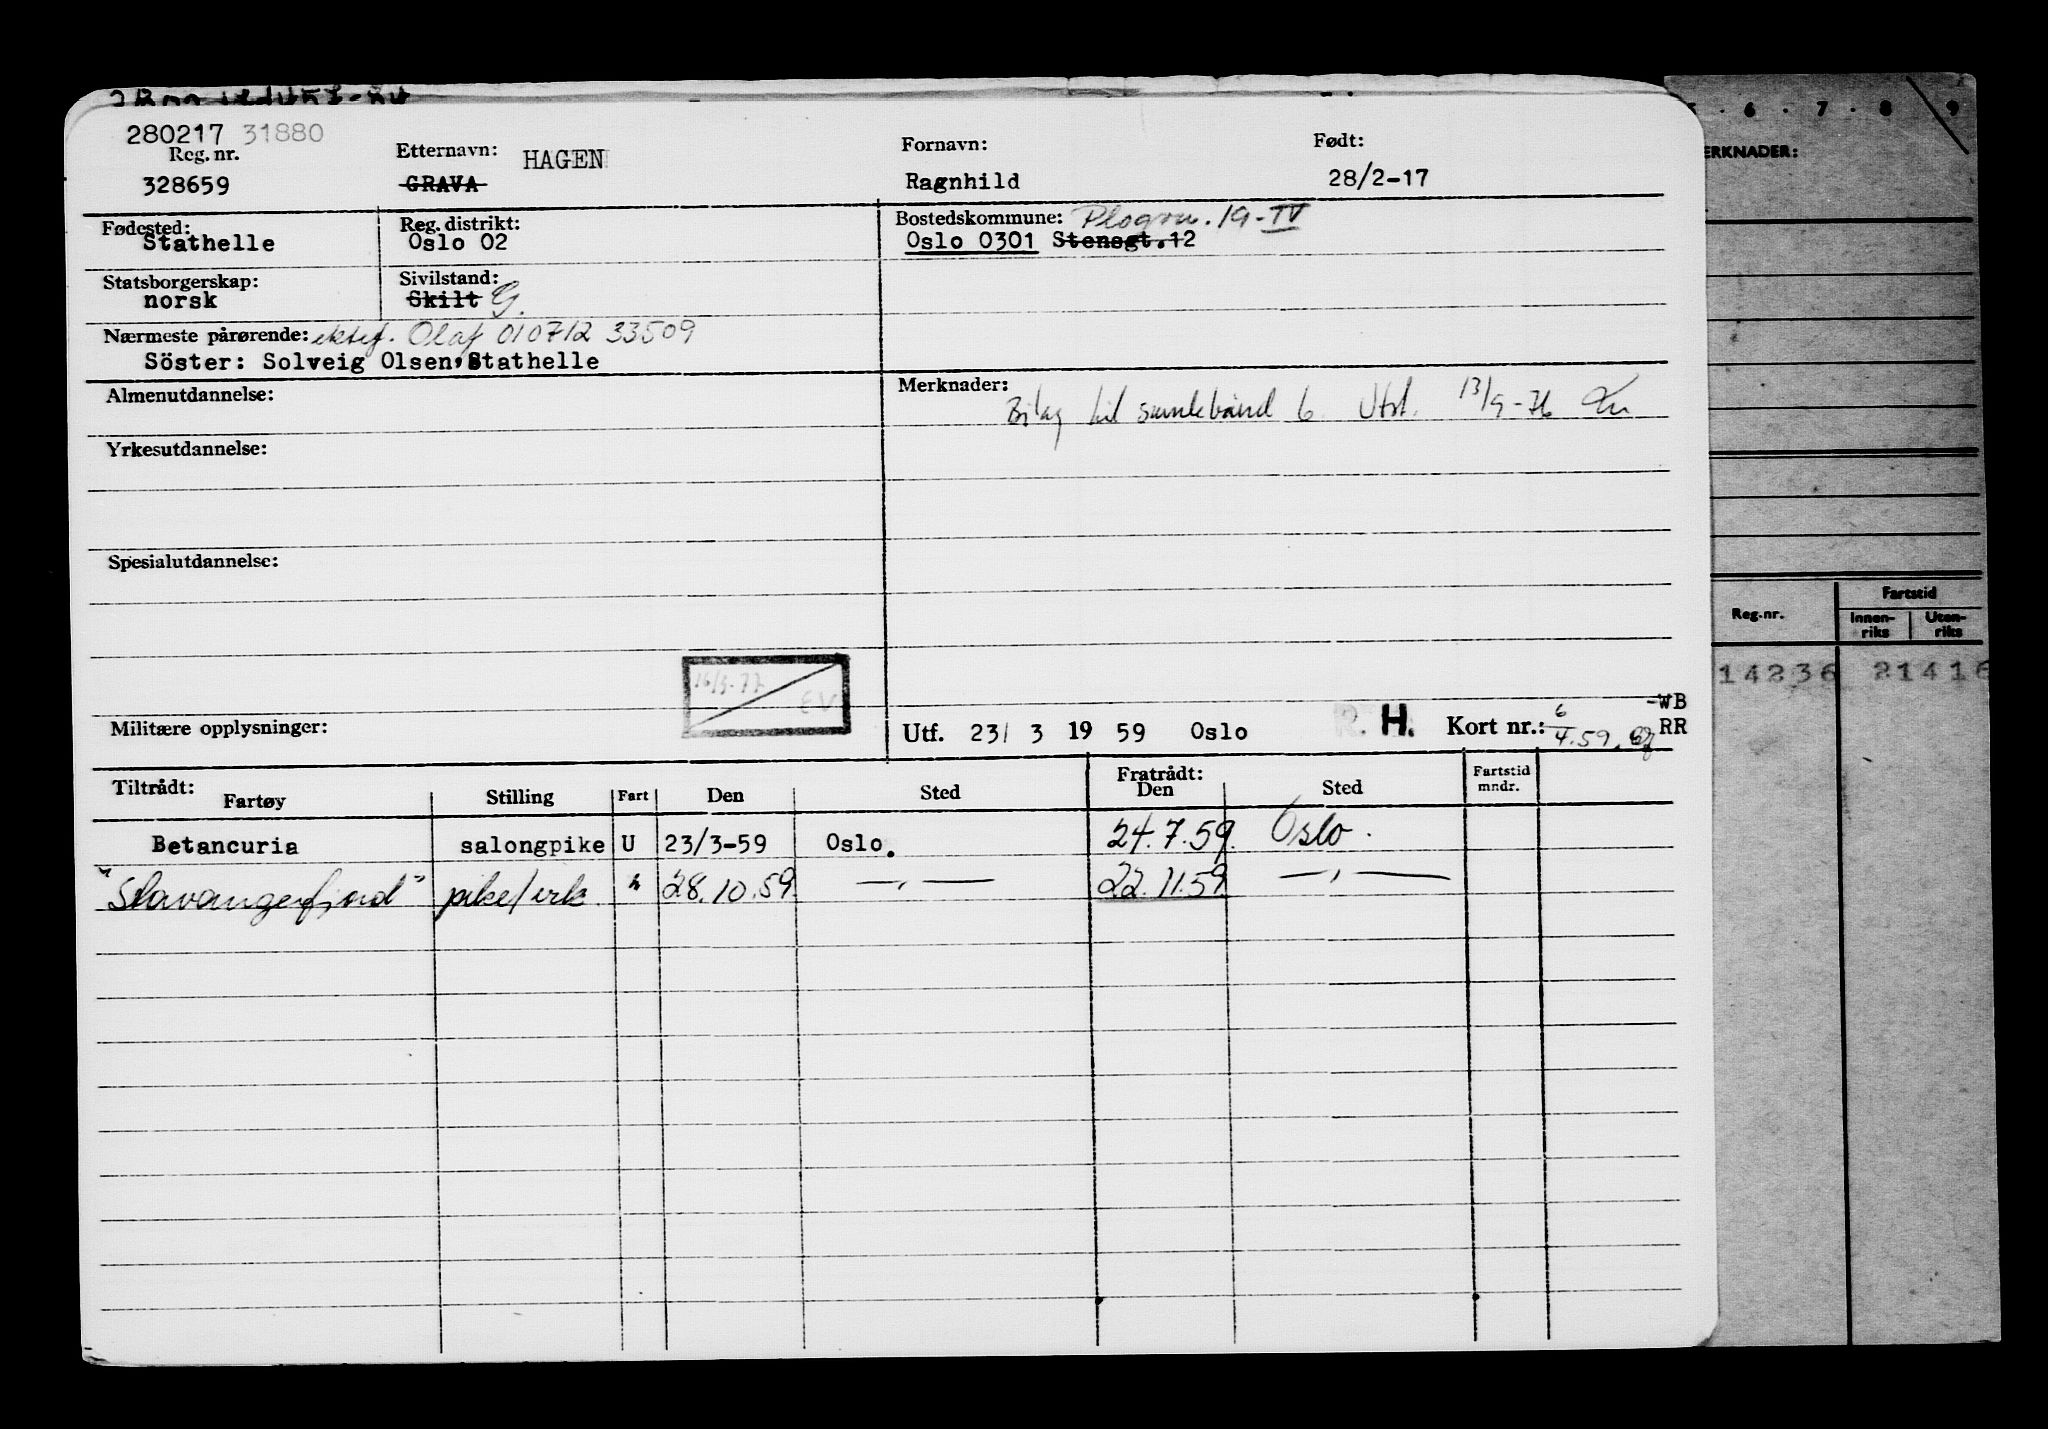 280217 31880
Reg. nr. Etternavn: HAGEN Fornavn: Født:
328659 GRAVA Ragnhild 28/2-17
Fødested: Reg. distrikt: Bostedskommune: Plogvn. 19-IV
Stathelle Oslo 02 Oslo 0301 Stensgt.12
Statsborgerskap: Sivilstand:
norsk Skilt G.
Nærmeste pårørende: ektef. Olaf 010712 33509
Söster: Solveig Olsen, Stathelle
Almenutdannelse: Merknader:
Bilag til samlebånd 6. Utst. 13/9-76
Yrkesutdannelse:
Spesialutdannelse:
16/3-77 EV
Militære opplysninger:
Utf. 23/ 3 19 59 Oslo R. H. Kort nr.: 6/4.59. -WB RR
Tiltrådt: Fratrådt:
Fartøy Stilling Fart Den Sted Den Sted Fartstid mndr.
Betancuria salongpike U 23/3-59 Oslo. 24.7.59. Oslo.
"Stavangerfjord" pike/erk " 28.10.59 —,,— 22.11.59 —,,—
6 . 7 . 8 . 9
ERKNADER:
Reg.nr. Fartstid
Innenriks Utenriks
14236 21416